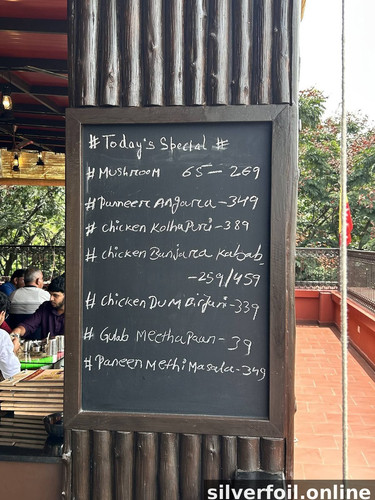 # Today's Special #
# Mushroom 65 - 269
# Panneer Angara - 349
# chicken Kolhapuri - 389
# chicken Banjara Kabab
- 259/459
# Chicken Dum Birjani - 339
# Gulab Meetha Paan - 39
# Paneen Methi Masala - 349
silverfoil.online